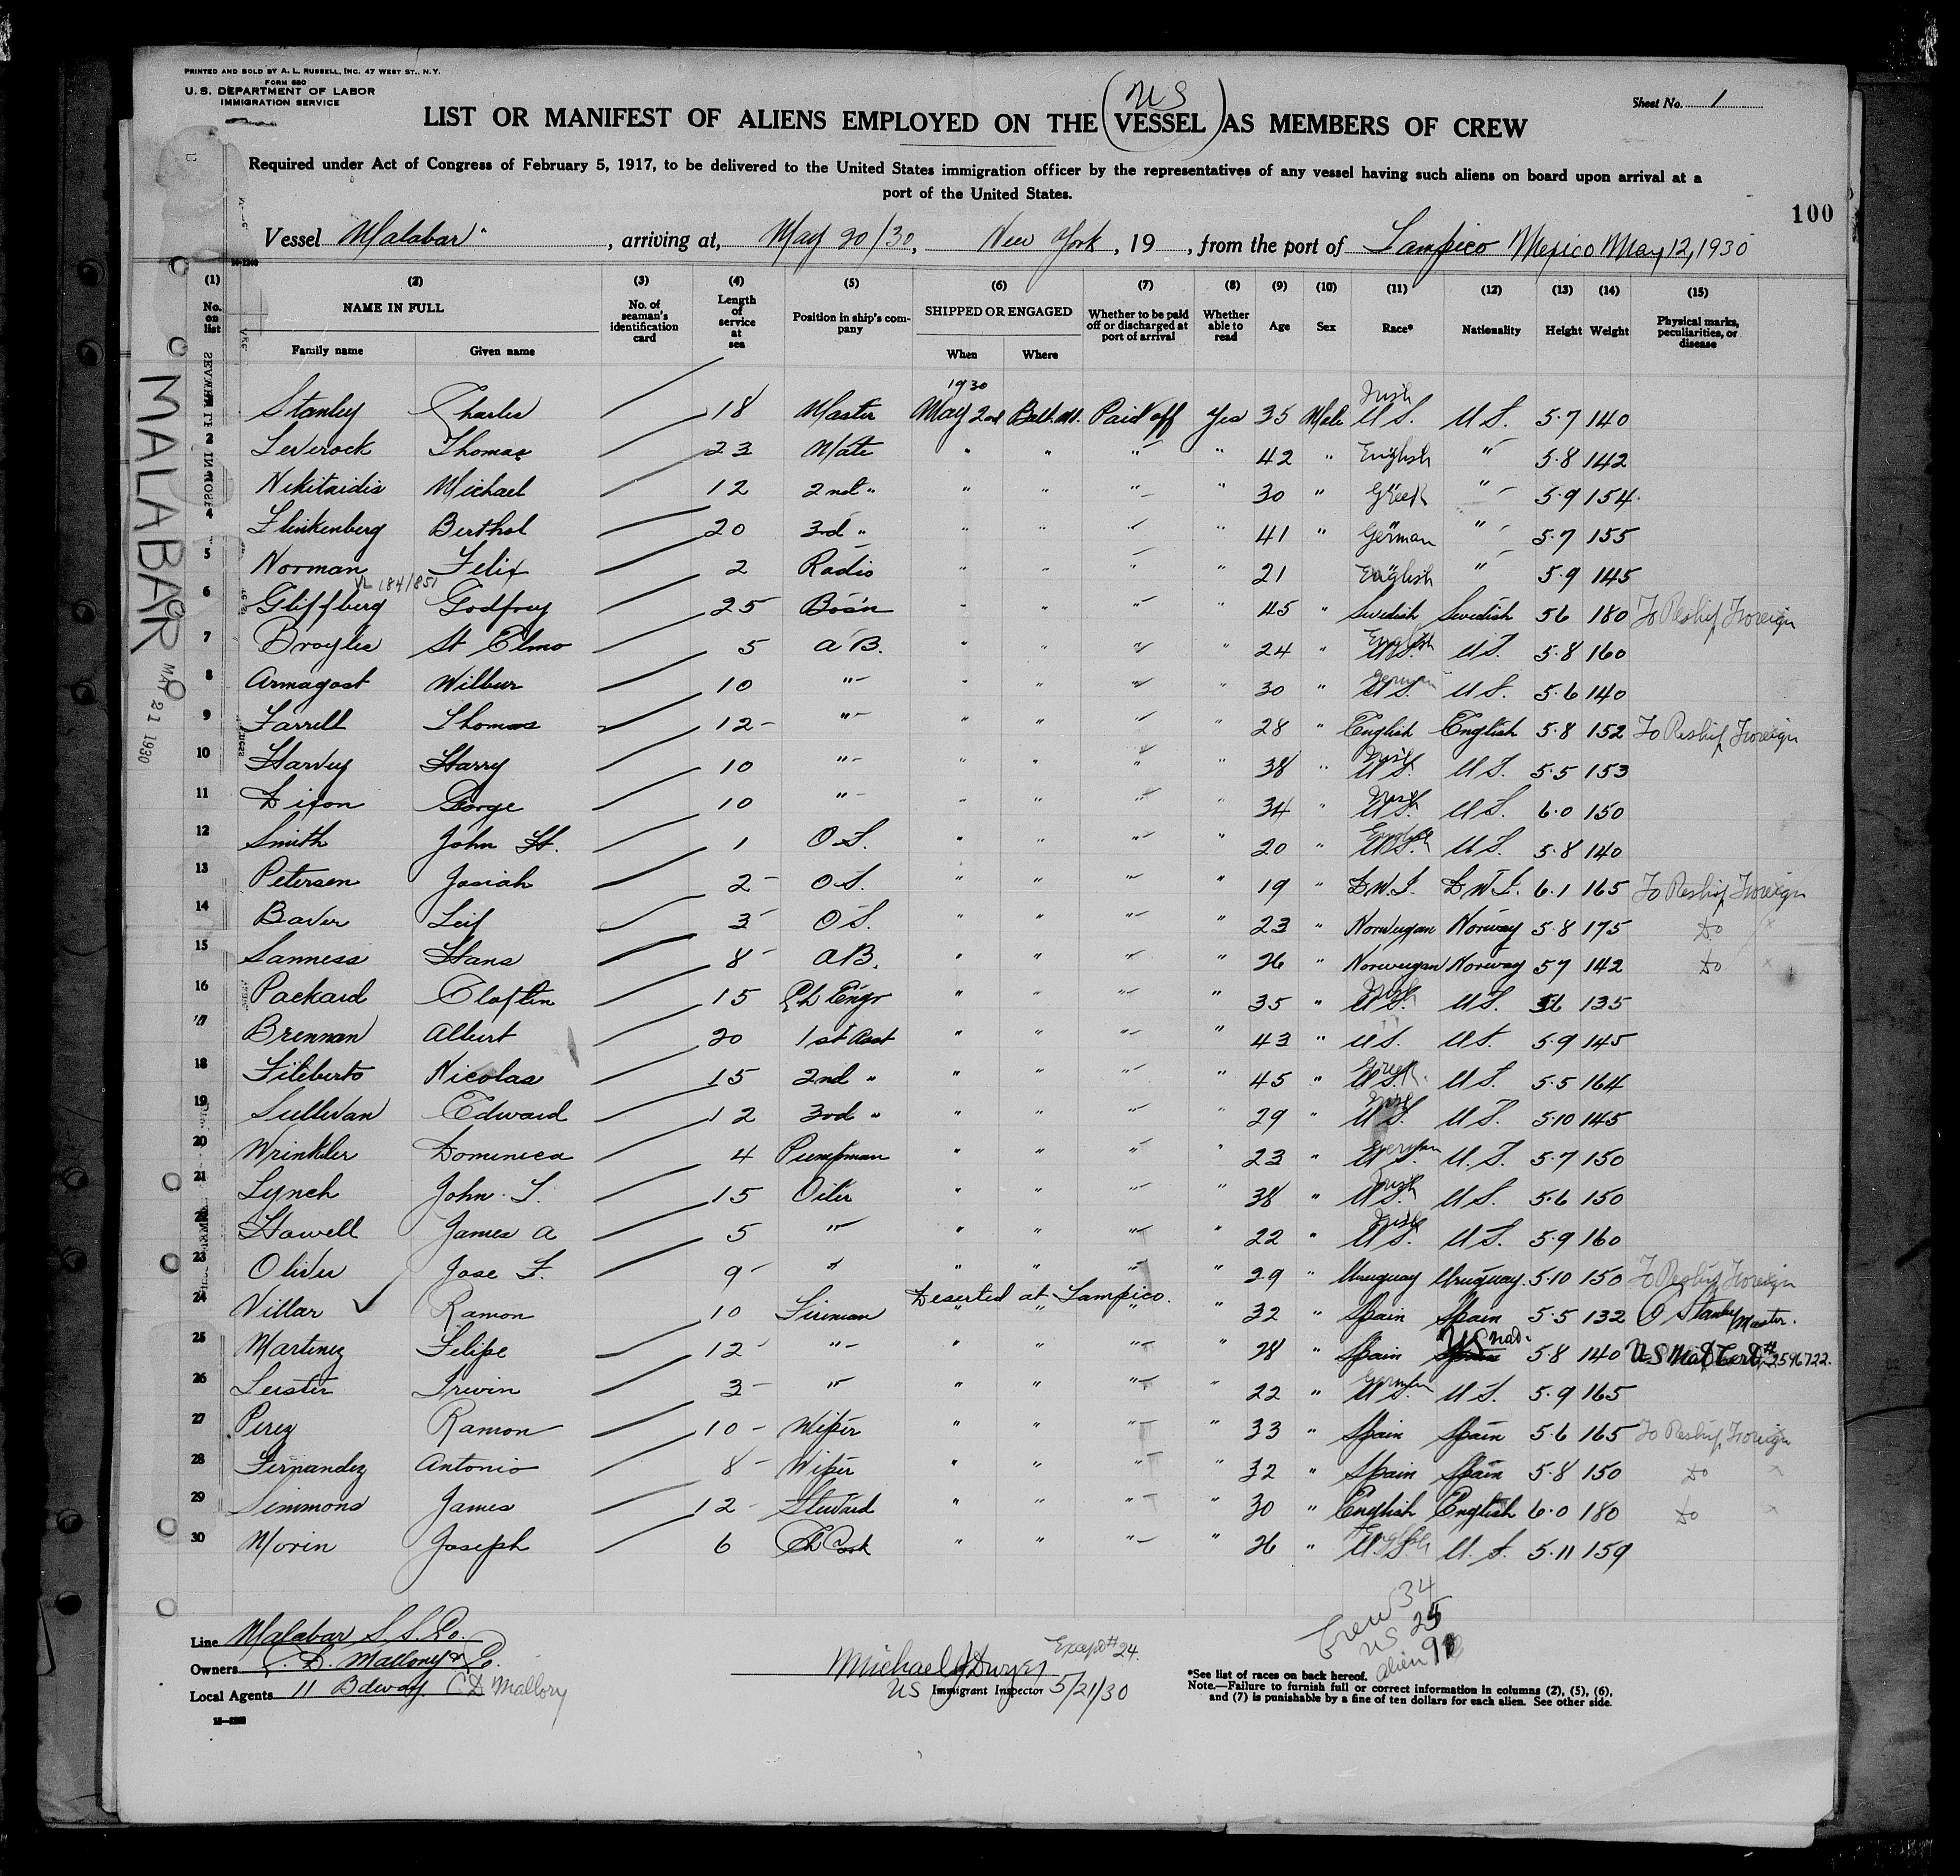 PRINTED AND SOLD BY A. L. RUSSELL, INC. 47 WEST ST., N.Y.
FORM 680
U. S. DEPARTMENT OF LABOR
IMMIGRATION SERVICE
Sheet No. 1
US
LIST OR MANIFEST OF ALIENS EMPLOYED ON THE (VESSEL) AS MEMBERS OF CREW
Required under Act of Congress of February 5, 1917, to be delivered to the United States immigration officer by the representatives of any vessel having such aliens on board upon arrival at a
port of the United States.
100
Vessel Malabar, arriving at, May 20/30, New York, 19 , from the port of Tampico Mexico May 12, 1930
(1) (2) (3) (4) (5) (6) (7) (8) (9) (10) (11) (12) (13) (14) (15)
No. on list NAME IN FULL Family name Given name No. of seaman's identification card Length of service at sea Position in ship's company SHIPPED OR ENGAGED When Where Whether to be paid off or discharged at port of arrival Whether able to read Age Sex Race* Nationality Height Weight Physical marks, peculiarities, or disease
1930 Irish
Stanley Charles 18 Master May 2nd Balt. Md. Paid off Yes 35 Male U S. U S. 5·7 140
2 Leverock Thomas 23 Mate " " " " 42 " English " 5·8 142
Nikitaidis Michael 12 2nd " " " " " 30 " Greek " 5·9 154
4 Flinkenberg Berthol 20 3rd " " " " " 41 " German " 5·7 155
5 Norman Felix 2 Radio " " " " 21 " English " 5·9 145
VL 184/851
6 Gliffberg Godfrey 25 Bos'n " " " " 45 " Swedish Swedish 56 180 To Reship Foreign
7 Broyles St Elmo 5 A B. " " " " 24 " U S. English U S. 5·8 160
8 Armagost Wilbur 10 " " " " " 30 " U S. German U S. 5·6 140
9 Farrell Thomas 12 " " " " " 28 " English English 5·8 152 To Reship Foreign
10 Harvey Harry 10 " " " " " 38 " U S. Irish U S. 5·5 153
11 Dixon George 10 " " " " " 34 " U S. Irish U S. 6·0 150
12 Smith John H. 1 O S. " " " " 20 " U S. English U S. 5·8 140
13 Petersen Josiah 2 O S. " " " " 19 " D. W. I. D. W. I. 6·1 165 To Reship Foreign
14 Baver Leif 3 O S. " " " " 23 " Norwegian Norway 5·8 175 Do x
15 Sanness Hans 8 A B. " " " " 26 " Norwegian Norway 57 142 Do x
16 Packard Cloftin 15 Ch Engr " " " " 35 " U S. Irish U S. 56 135
17 Brennan Albert 20 1st Asst " " " " 43 " U S. U S. 5·9 145
18 Filiberto Nicolas 15 2nd " " " " " 45 " U S. Greek U S. 5·5 164
19 Sullivan Edward 12 3rd " " " " " 29 " U S. Irish U S. 5·10 145
20 Wrinkler Domenica 4 Pumpman " " " " 23 " U S. German U. S. 5·7 150
21 Lynch John. J. 15 Oiler " " " " 38 " U S. Irish U S. 5·6 150
22 Howell James A 5 " " " " " 22 " U S. Irish U S. 5·9 160
23 Oliver Jose F. 9 " " " " " 29 " Uruguay Uruguay. 5·10 150 To Reship Foreign
24 Villar ✓ Ramon 10 Fireman Deserted at Tampico. " 32 " Spain Spain 5·5 132 C Stanley Master.
25 Martinez Felipe 12 " " " " " 28 " Spain Spain US Nat. 5·8 140 US Nat Cert # 2596722.
26 Leister Irwin 3 " " " " " 22 " U S. German U S. 5·9 165
27 Perez Ramon 10 Wiper " " " " 33 " Spain Spain 5·6 165 To Reship Foreign
28 Fernandez Antonio 8 Wiper " " " " 32 " Spain Spain 5·8 150 Do x
29 Simmons James 12 Steward " " " " 30 " English English 6·0 180 Do x
30 Morin Joseph 6 Ch Cook " " " " 26 " U. S. English U. S. 5·11 159
MALABAR
MAY 21 1930
Crew 34
US 25
alien 9
Line Malabar S S. Co.
Owners C. D. Mallory & Co.
Local Agents 11 Bdway. C D Mallory
Except # 24.
Michael J Dwyer
US Immigrant Inspector 5/21/30
*See list of races on back hereof.
Note.—Failure to furnish full or correct information in columns (2), (5), (6),
and (7) is punishable by a fine of ten dollars for each alien. See other side.